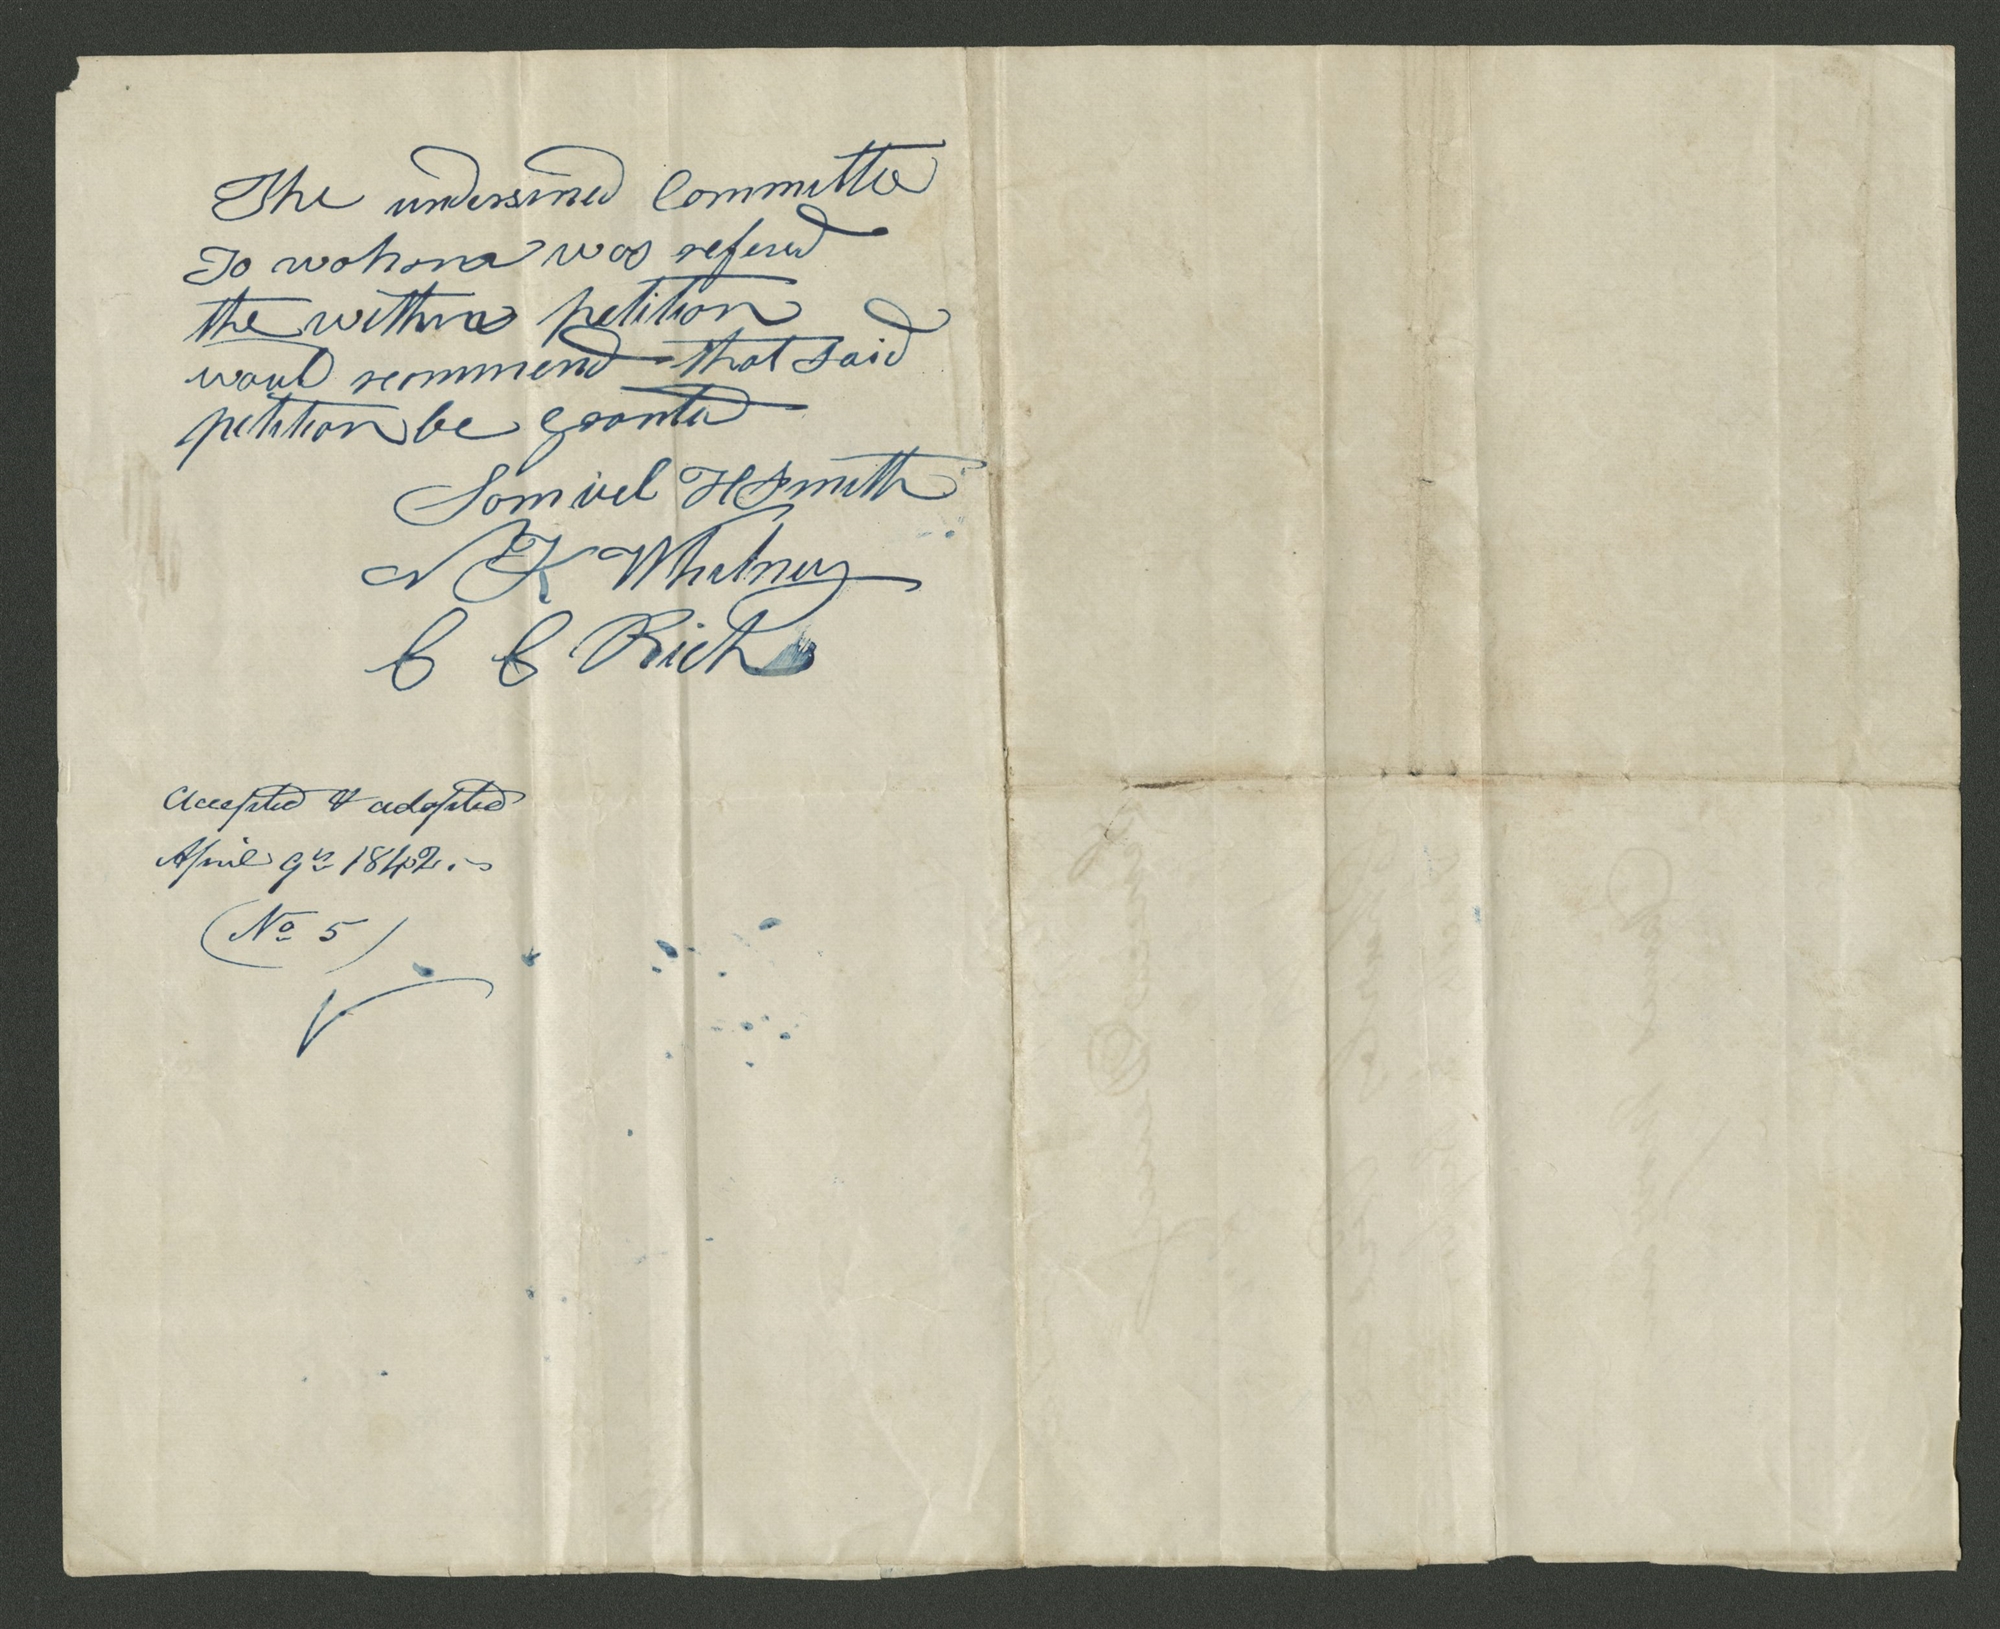 The undersined Committee
To wohom was refered
the within petition
would recommend that said
petition be granted
Samuel H Smith
N K Whitney
C C Rich
Accepted & adopted
April 9th 1842.
(No 5)